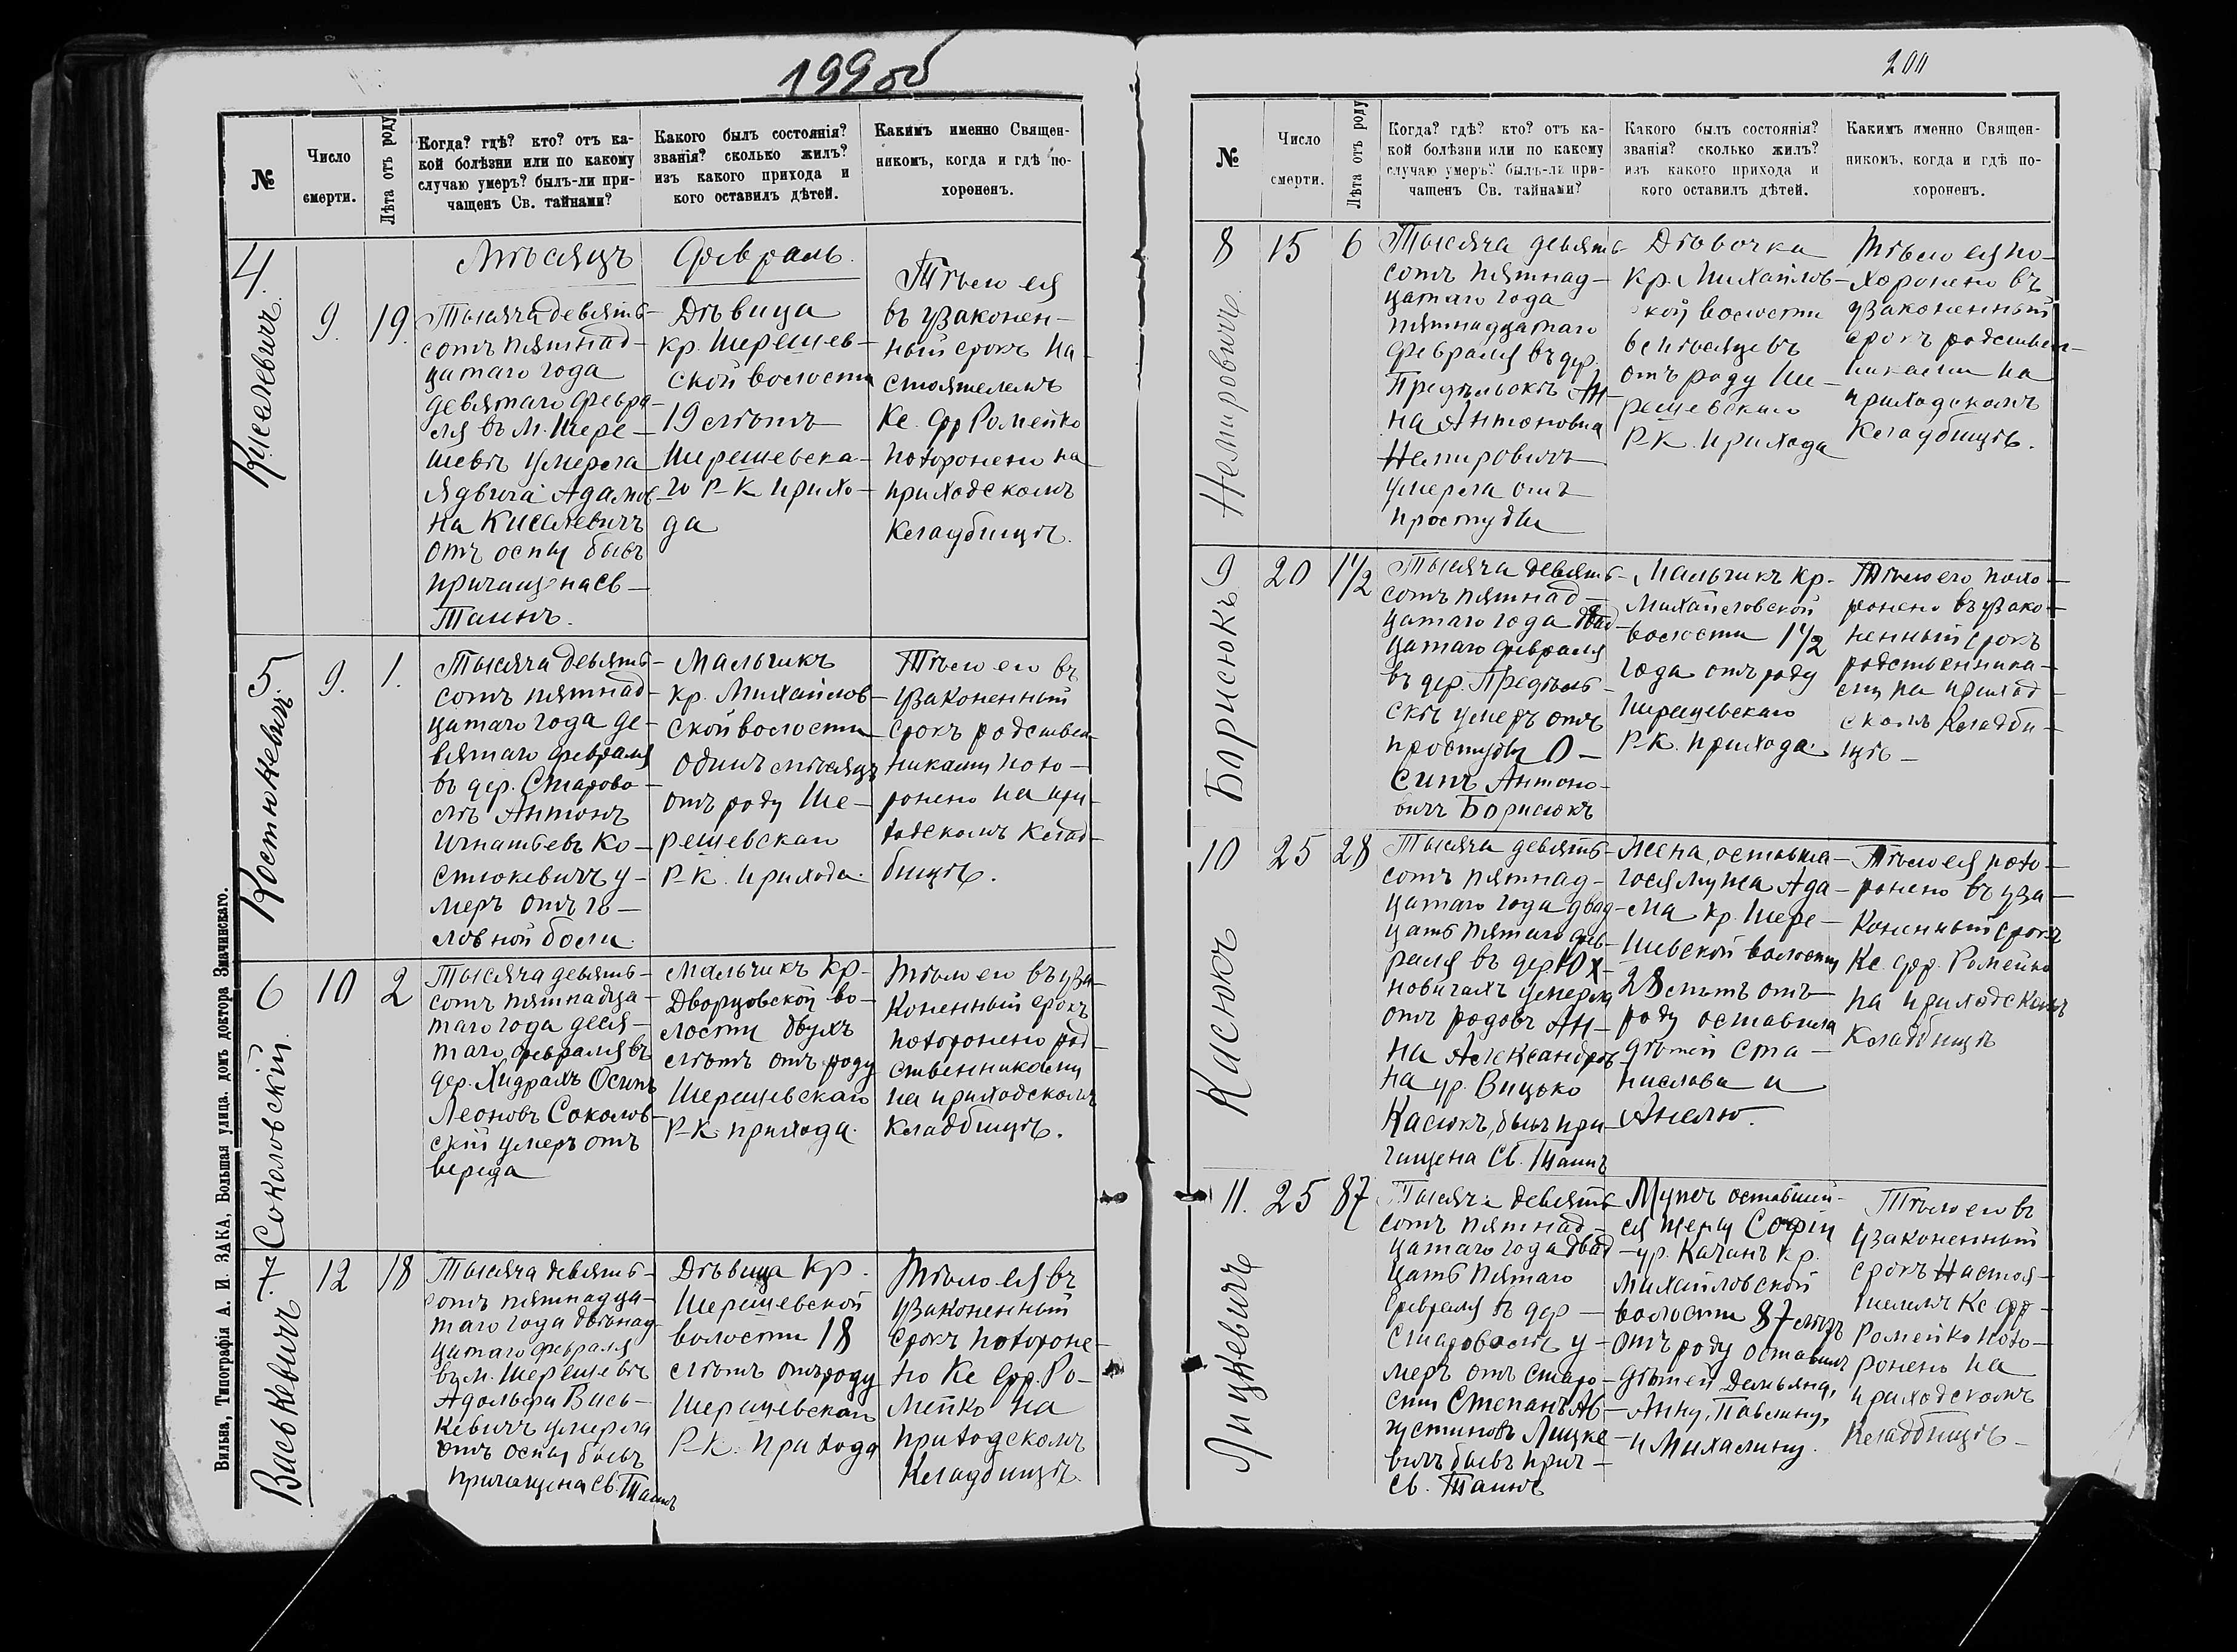 199об
№
Число
смерти.
Лѣта отъ роду
Когда? гдѣ? кто? отъ ка-
кой болѣзни или по какому
случаю умеръ? былъ-ли при-
чащенъ Св. тайнами?
Какого былъ состоянія?
званія? сколько жилъ?
изъ какого прихода и
кого оставилъ дѣтей.
Какимъ именно Священ-
никомъ, когда и гдѣ по-
хороненъ.
Мѣсяцъ Февраль.
4.
Киселевичъ
9.
19.
Тысяча девять-
сотъ пятнад-
цатаго года
девятаго февра-
ля въ м. Шере-
шевѣ умерла
Ядвига Адамов
на Киселевичъ
отъ оспы бывъ
причащена Св-
Таинъ.
Дѣвица
кр. Шерешев-
ской волости
19 лѣтъ
Шерешевска-
го Р-К прихо-
да
Тѣло ея
въ узаконен-
ный срокъ На-
стоятелемъ
Кс. Фр Ромейко
похоронено на
приходскомъ
кладбищѣ.
5
Костюкевичъ.
9.
1.
Тысяча девять-
сотъ пятнад-
цатаго года де-
вятаго февраля
въ дер. Старово-
лѣ Антонъ
Игнатьевъ Ко-
стюкевичъ у-
меръ отъ го-
ловной боли.
Мальчикъ
кр. Михайлов-
ской волости
одинъ мѣсяцъ
отъ роду Ше-
решевскаго
Р-К. прихода.
Тѣло его въ
узаконенный
срокъ родствен-
никами похо-
ронено на при-
ходскомъ клад-
бищѣ.
6
Соколовскій.
10
2
Тысяча девять-
сотъ пятнадца-
таго года деся-
таго февраля въ
дер. Хидрахъ Осипъ
Леоновъ Соколов-
скій умеръ отъ
вереда
Мальчикъ кр.
Дворцовской во-
лости двухъ
лѣтъ отъ роду
Шерешевскаго
Р-К. прихода.
Тѣло его въ уза-
коненный срокъ
похоронено род-
ственниками
на приходскомъ
кладбищѣ.
7
Васькевичъ
12
18
Тысяча девять-
сотъ пятнадца-
таго года двѣнад-
цатаго февраля
въ м. Шерешевѣ
Адольфа Вась-
кевичъ умерла
отъ оспы бывъ
причащена Св. Таинъ
Дѣвица кр.
Шерешевской
волости 18
лѣтъ отъ роду
Шерешевскаго
Р-К. прихода
Тѣло ея въ
узаконенный
срокъ похороне-
но Кс Фр. Ро-
мейко на
приходскомъ
кладбищѣ.
Вильна, Типографія А. И. ЗАКА, Большая улица, домъ доктора Змачинскаго.
200
№
Число
смерти.
Лѣта отъ роду
Когда? гдѣ? кто? отъ ка-
кой болѣзни или по какому
случаю умеръ? былъ-ли при-
чащенъ Св. тайнами?
Какого былъ состоянія?
званія? сколько жилъ?
изъ какого прихода и
кого оставилъ дѣтей.
Какимъ именно Священ-
никомъ, когда и гдѣ по-
хороненъ.
8
Немировичъ.
15
6
Тысяча девять-
сотъ пятнад-
цатаго года
пятнадцатаго
февраля въ дер.
Предѣльскѣ Ан-
на Антоновна
Немировичъ
умерла отъ
простуды
Дѣвочка
кр. Михайлов-
ской волости
6 мѣсяцевъ
отъ роду Ше-
решевскаго
Р-К. прихода
Тѣло ея по-
хоронено въ
узаконенный
срокъ родствен-
никами на
приходскомъ
кладбищѣ.
9
Борисюкъ
20
1½
Тысяча девять-
сотъ пятнад-
цатаго года двад-
цатаго февраля
въ дер. Предѣль-
скѣ умеръ отъ
простуды О-
сипъ Антоно-
вичъ Борисюкъ
Мальчикъ кр.
Михайловской
волости 1½
года отъ роду
Шерешевскаго
Р-К. прихода.
Тѣло его похо-
ронено въ узако-
ненный срокъ
родственника-
ми на приход-
скомъ кладби-
щѣ-
10
Касюкъ
25
28
Тысяча девять-
сотъ пятнад-
цатаго года двад-
цать пятаго фев-
раля въ дер Юх-
новичахъ умерла
отъ родовъ Ан-
на Александров-
на ур. Вицько
Касюкъ, бывъ при-
чащена Св. Таинъ
Жена, оставша-
гося мужа Ада-
ма кр. Шере-
шевской волости
28 лѣтъ отъ
роду оставила
дѣтей Ста-
нислава и
Анелю.
Тѣло ея похо-
ронено въ уза-
коненный срокъ
Кс. Фр. Ромейко
на приходскомъ
кладбищѣ
11.
Лицкевичъ
25
87
Тысяча девять-
сотъ пятнад-
цатаго года двад-
цать пятаго
февраля въ дер-
Староволѣ у-
меръ отъ старо-
сти Степанъ Ав-
густиновъ Лицке-
вичъ бывъ прич-
Св. Таинъ
Мужъ оставшей-
ся жены Софіи
ур. Качанъ кр.
Михайловской
волости 87 лѣтъ
отъ роду оставилъ
дѣтей Демьяна,
Анну, Павлину,
и Михалину.
Тѣло его въ
узаконенный
срокъ Настоя-
телемъ Кс Фр-
Ромейко похо-
ронено на
приходскомъ
кладбищѣ-